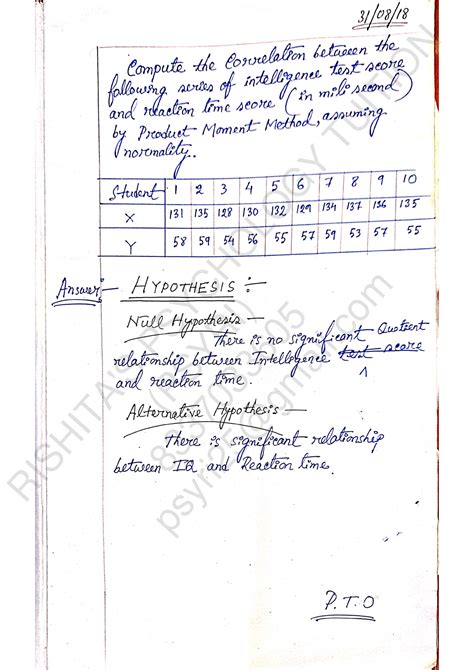 31/08/18
Compute the Correlation between the
following series of intelligence test score
and reaction time score (in mili second)
by Product Moment Method, assuming
normality..
Student 1 2 3 4 5 6 7 8 9 10
X 131 135 128 130 132 129 134 137 136 135
Y 58 59 54 56 55 57 59 53 57 55
Answer:- HYPOTHESIS :-
Null Hypothesis -
There is no significant Quotient
relationship between Intelligence test score
and reaction time.
Alternative Hypothesis -
There is significant relationship
between IQ and Reaction time.
P.T.O
RISHITA'S PSYCHOLOGY TUITION